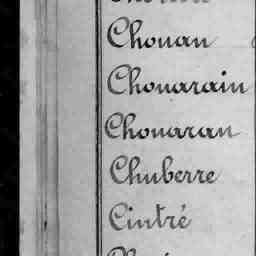 Chouan
Chouarain
Chouaran
Chuberre
Cintré